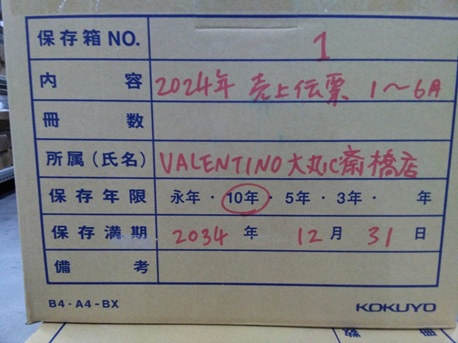 保存箱 NO. 1
内容 2024年 売上伝票 1～6月
冊数
所属(氏名) VALENTINO 大丸心斎橋店
保存年限 永年・10年・5年・3年・ 年
保存満期 2034 年 12 月 31 日
備考
B4・A4-BX KOKUYO